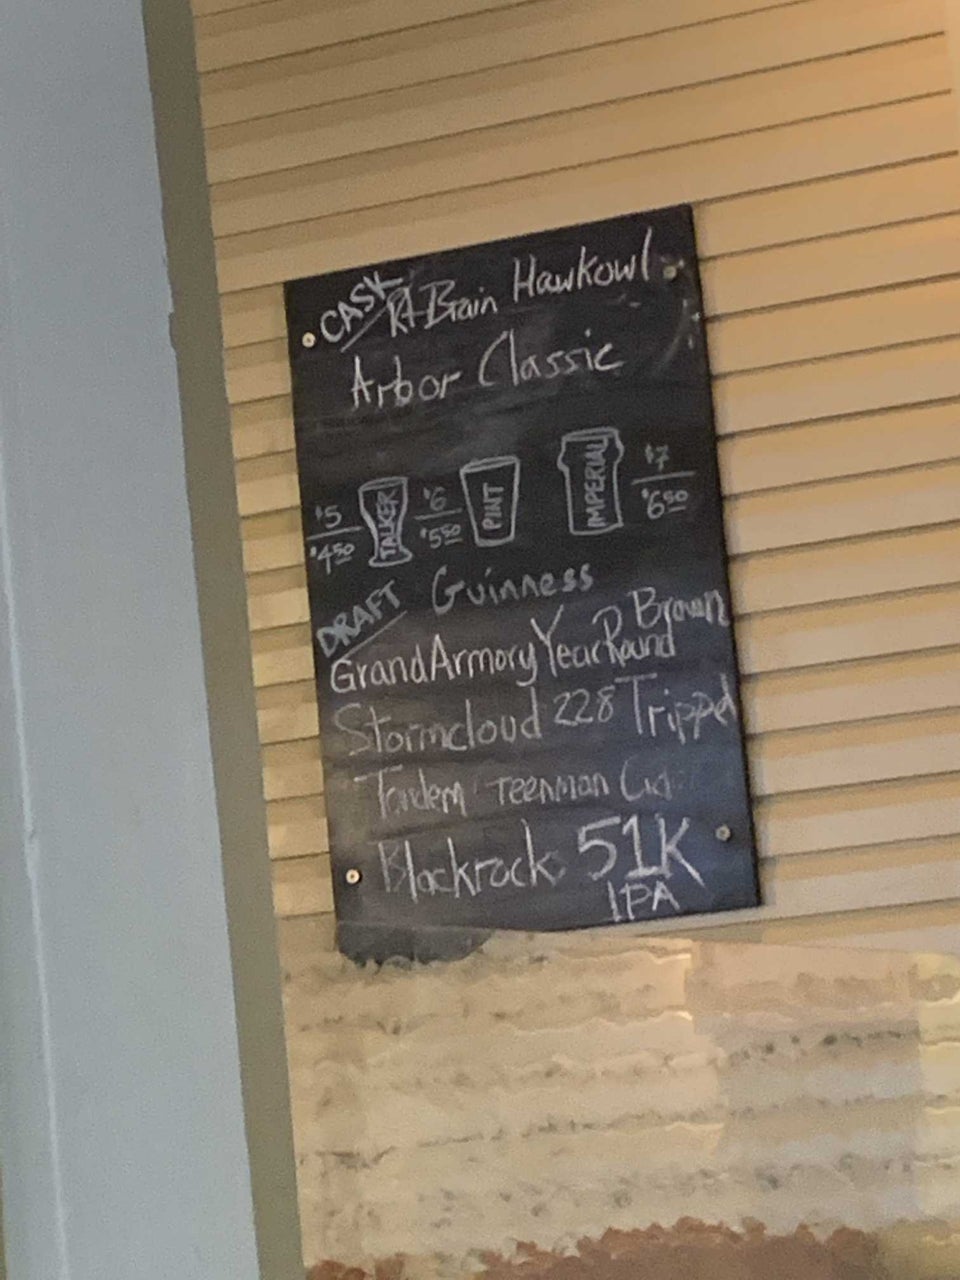 CASK Rt Brain Hawkowl
Arbor Classic
$5 TALKER $6 PINT IMPERIAL $7
$4.50 $5.50 $6.50
DRAFT Guinness
Grand Armory Year Round Brown
Stormcloud 228 Trippel
Tandem
Blackrocks 51K
IPA